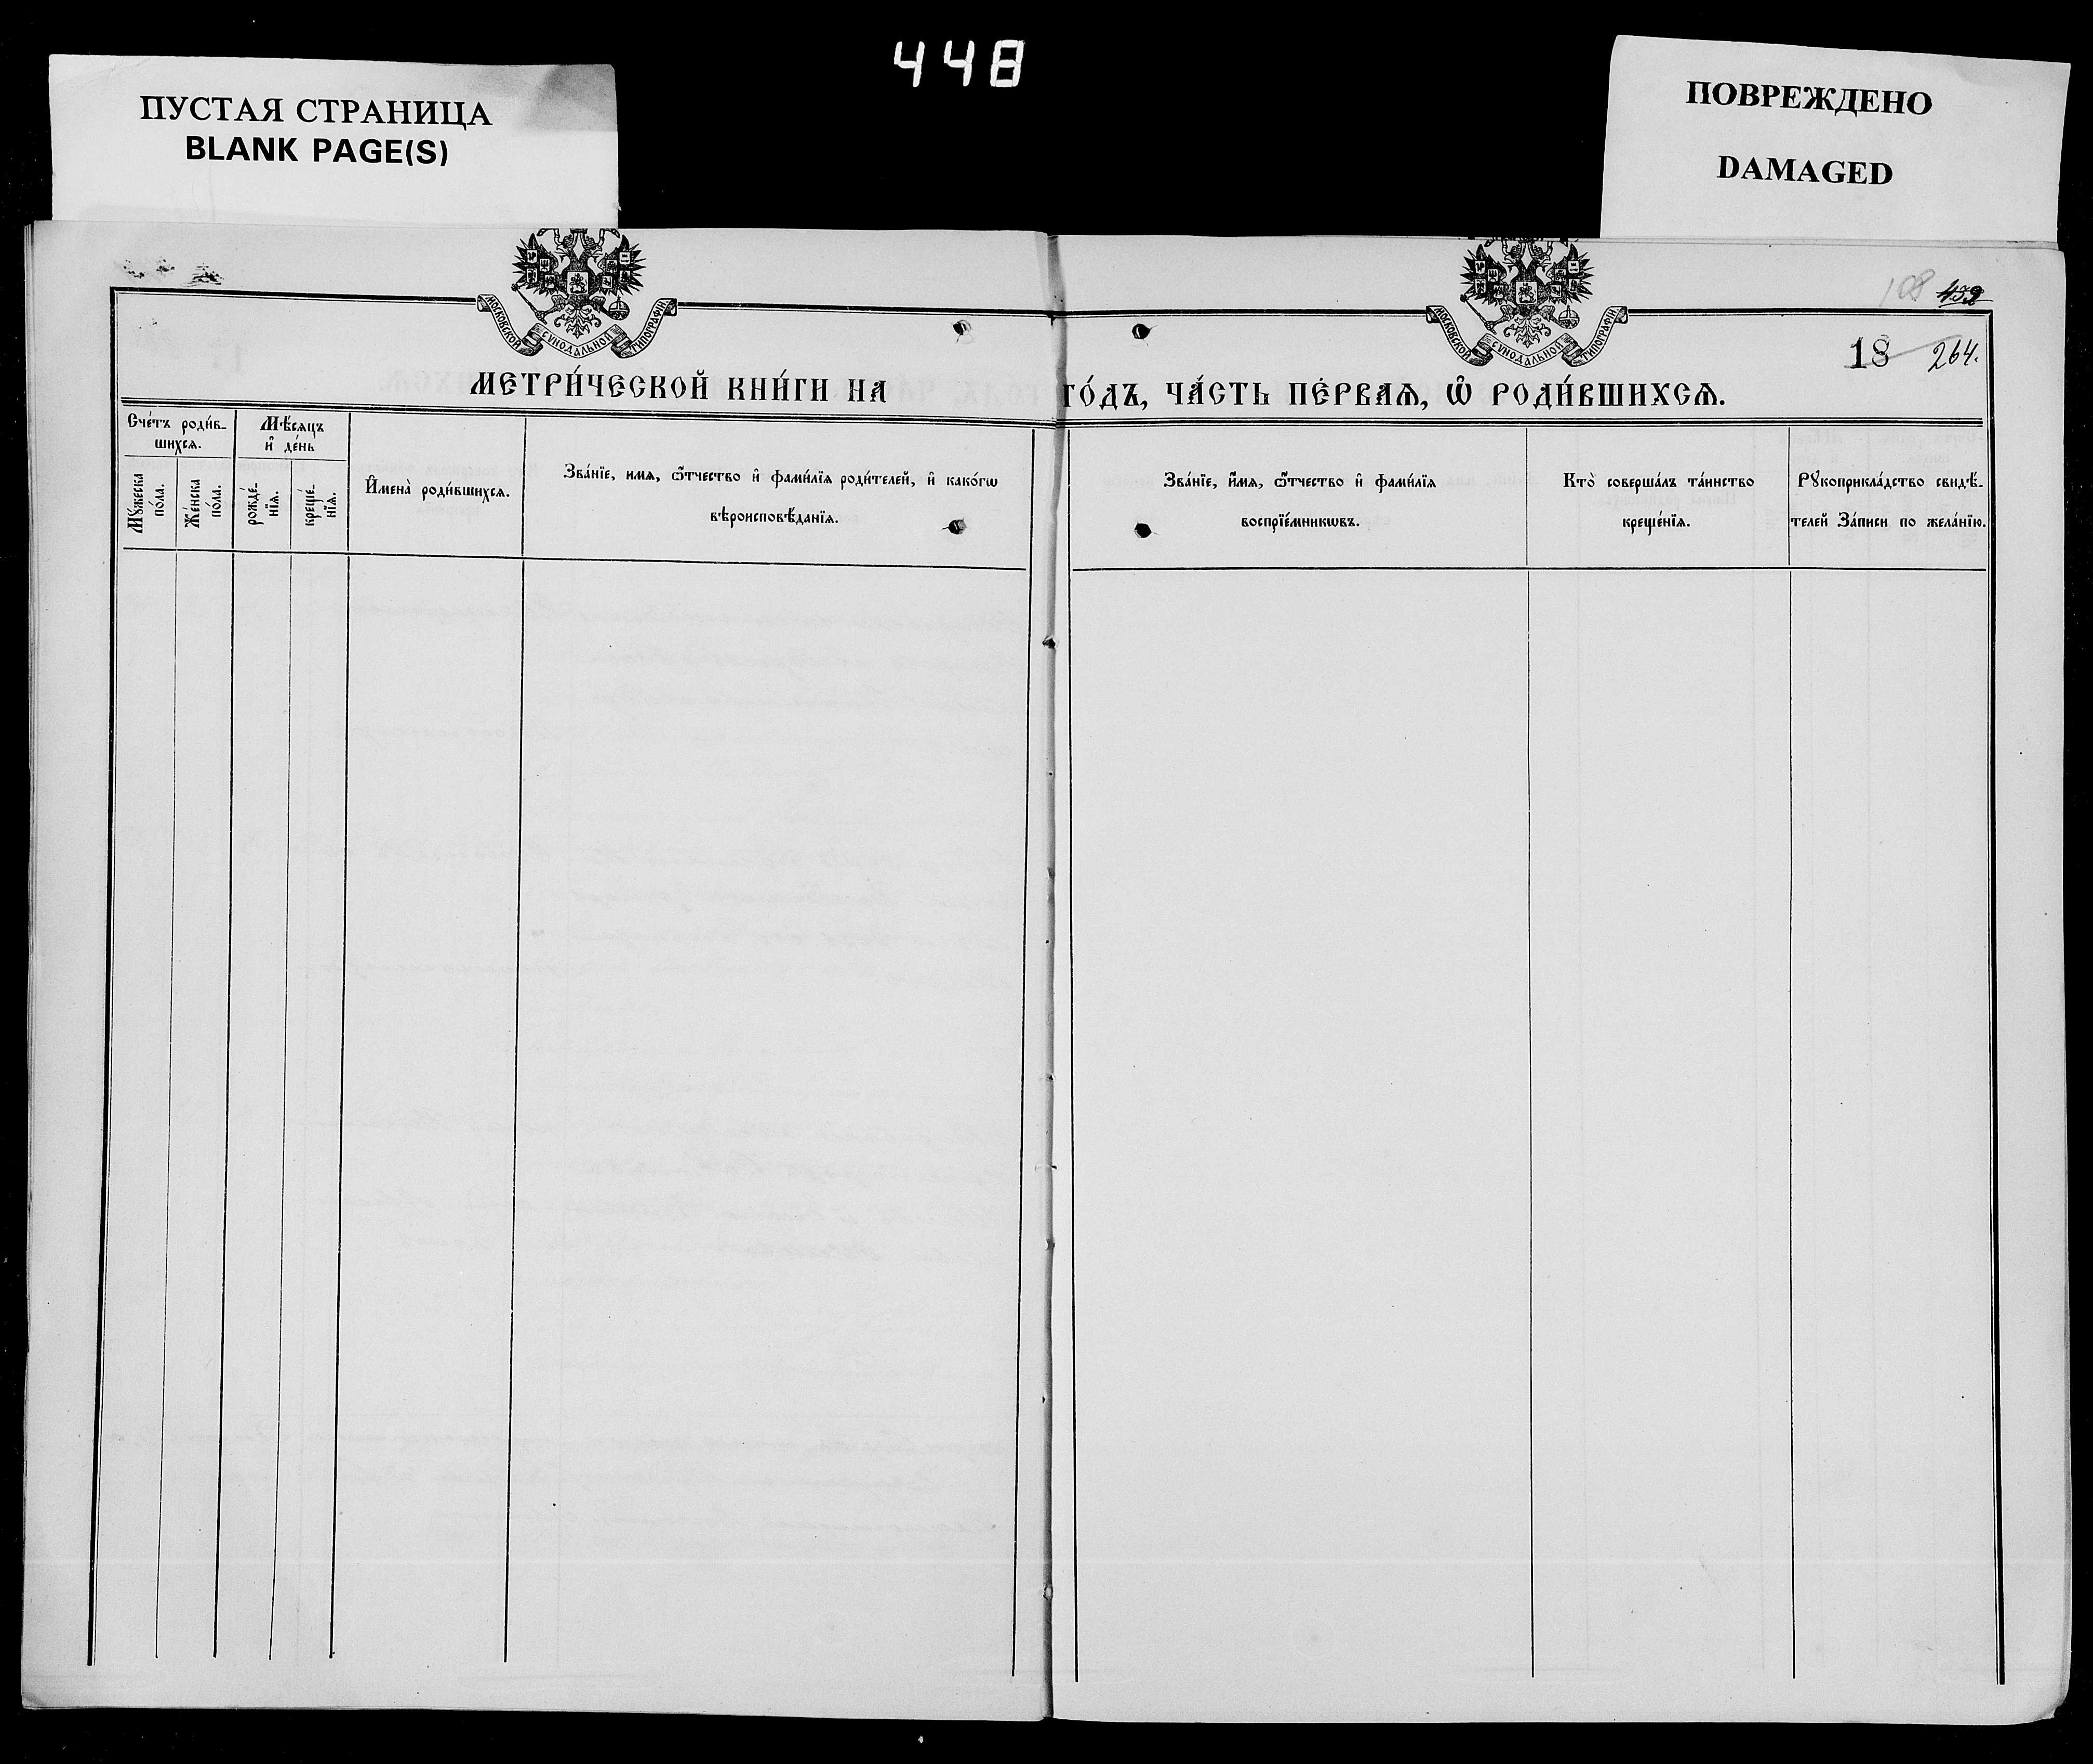 448
ПУСТАЯ СТРАНИЦА
BLANK PAGE(S)
ПОВРЕЖДЕНО
DAMAGED
МОСКОВСКОЙ СѴНОДАЛЬНОЙ ТИПОГРАФІИ
МОСКОВСКОЙ СѴНОДАЛЬНОЙ ТИПОГРАФІИ
108
18 264.
МЕТРИ́ЧЕСКОЙ КНИ́ГИ НА ГО́ДЪ, ЧА́СТЬ ПЕ́РВАѦ, Ѽ РОДИ́ВШИХСѦ.
Сче́тъ роди́в-
шихсѧ.
Мꙋжеска
по́ла.
Же́нска
по́ла.
Мѣ́сѧцъ
и҆ де́нь
рожде́-
нїѧ.
креще́-
нїѧ.
И҆мена̀ роди́вшихсѧ.
Зва́нїе, имѧ, ѻ҆́тчество и҆ фами́лїѧ роди́телей, и҆ како́гѡ
вѣроисповѣ́данїѧ.
Зва́нїе, и҆́мѧ, ѻ҆́тчество и҆ фами́лїѧ
воспрїе́мникѡвъ.
Кто̀ соверша́лъ та́инство
креще́нїѧ.
Рꙋкоприкла́дство свидѣ́-
телей За́писи по жела́нїю.